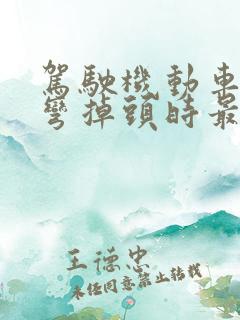 駕駛機動車
彎掉頭時最
王德忠
未经同意禁止转载